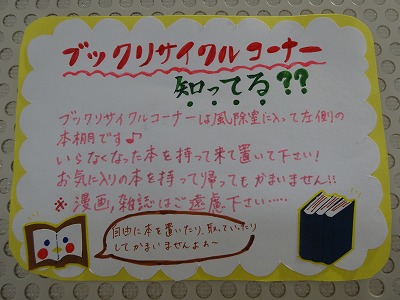 ブックリサイクルコーナー
知ってる??
ブックリサイクルコーナーは風除室に入って左側の
本棚です♪
いらなくなった本を持って来て置いて下さい!
お気に入りの本を持って帰ってもかまいません!!
※漫画,雑誌はご遠慮下さい……
自由に本を置いたり、取っていったり
してかまいませんよぉ~